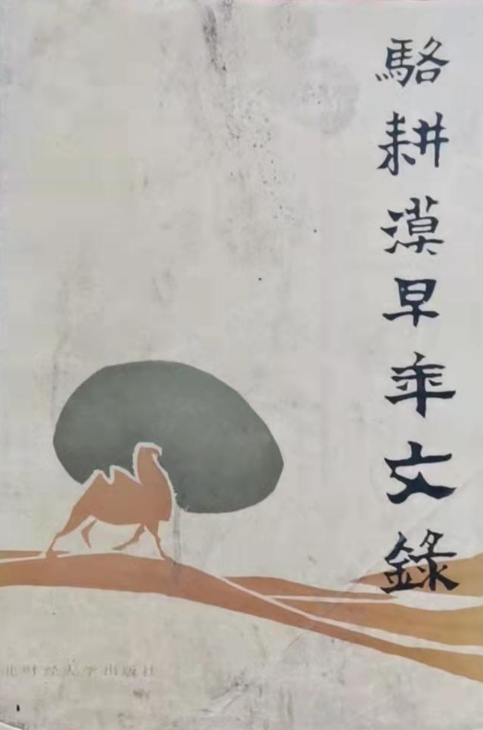 駱耕漠早年文錄
北财经大学出版社